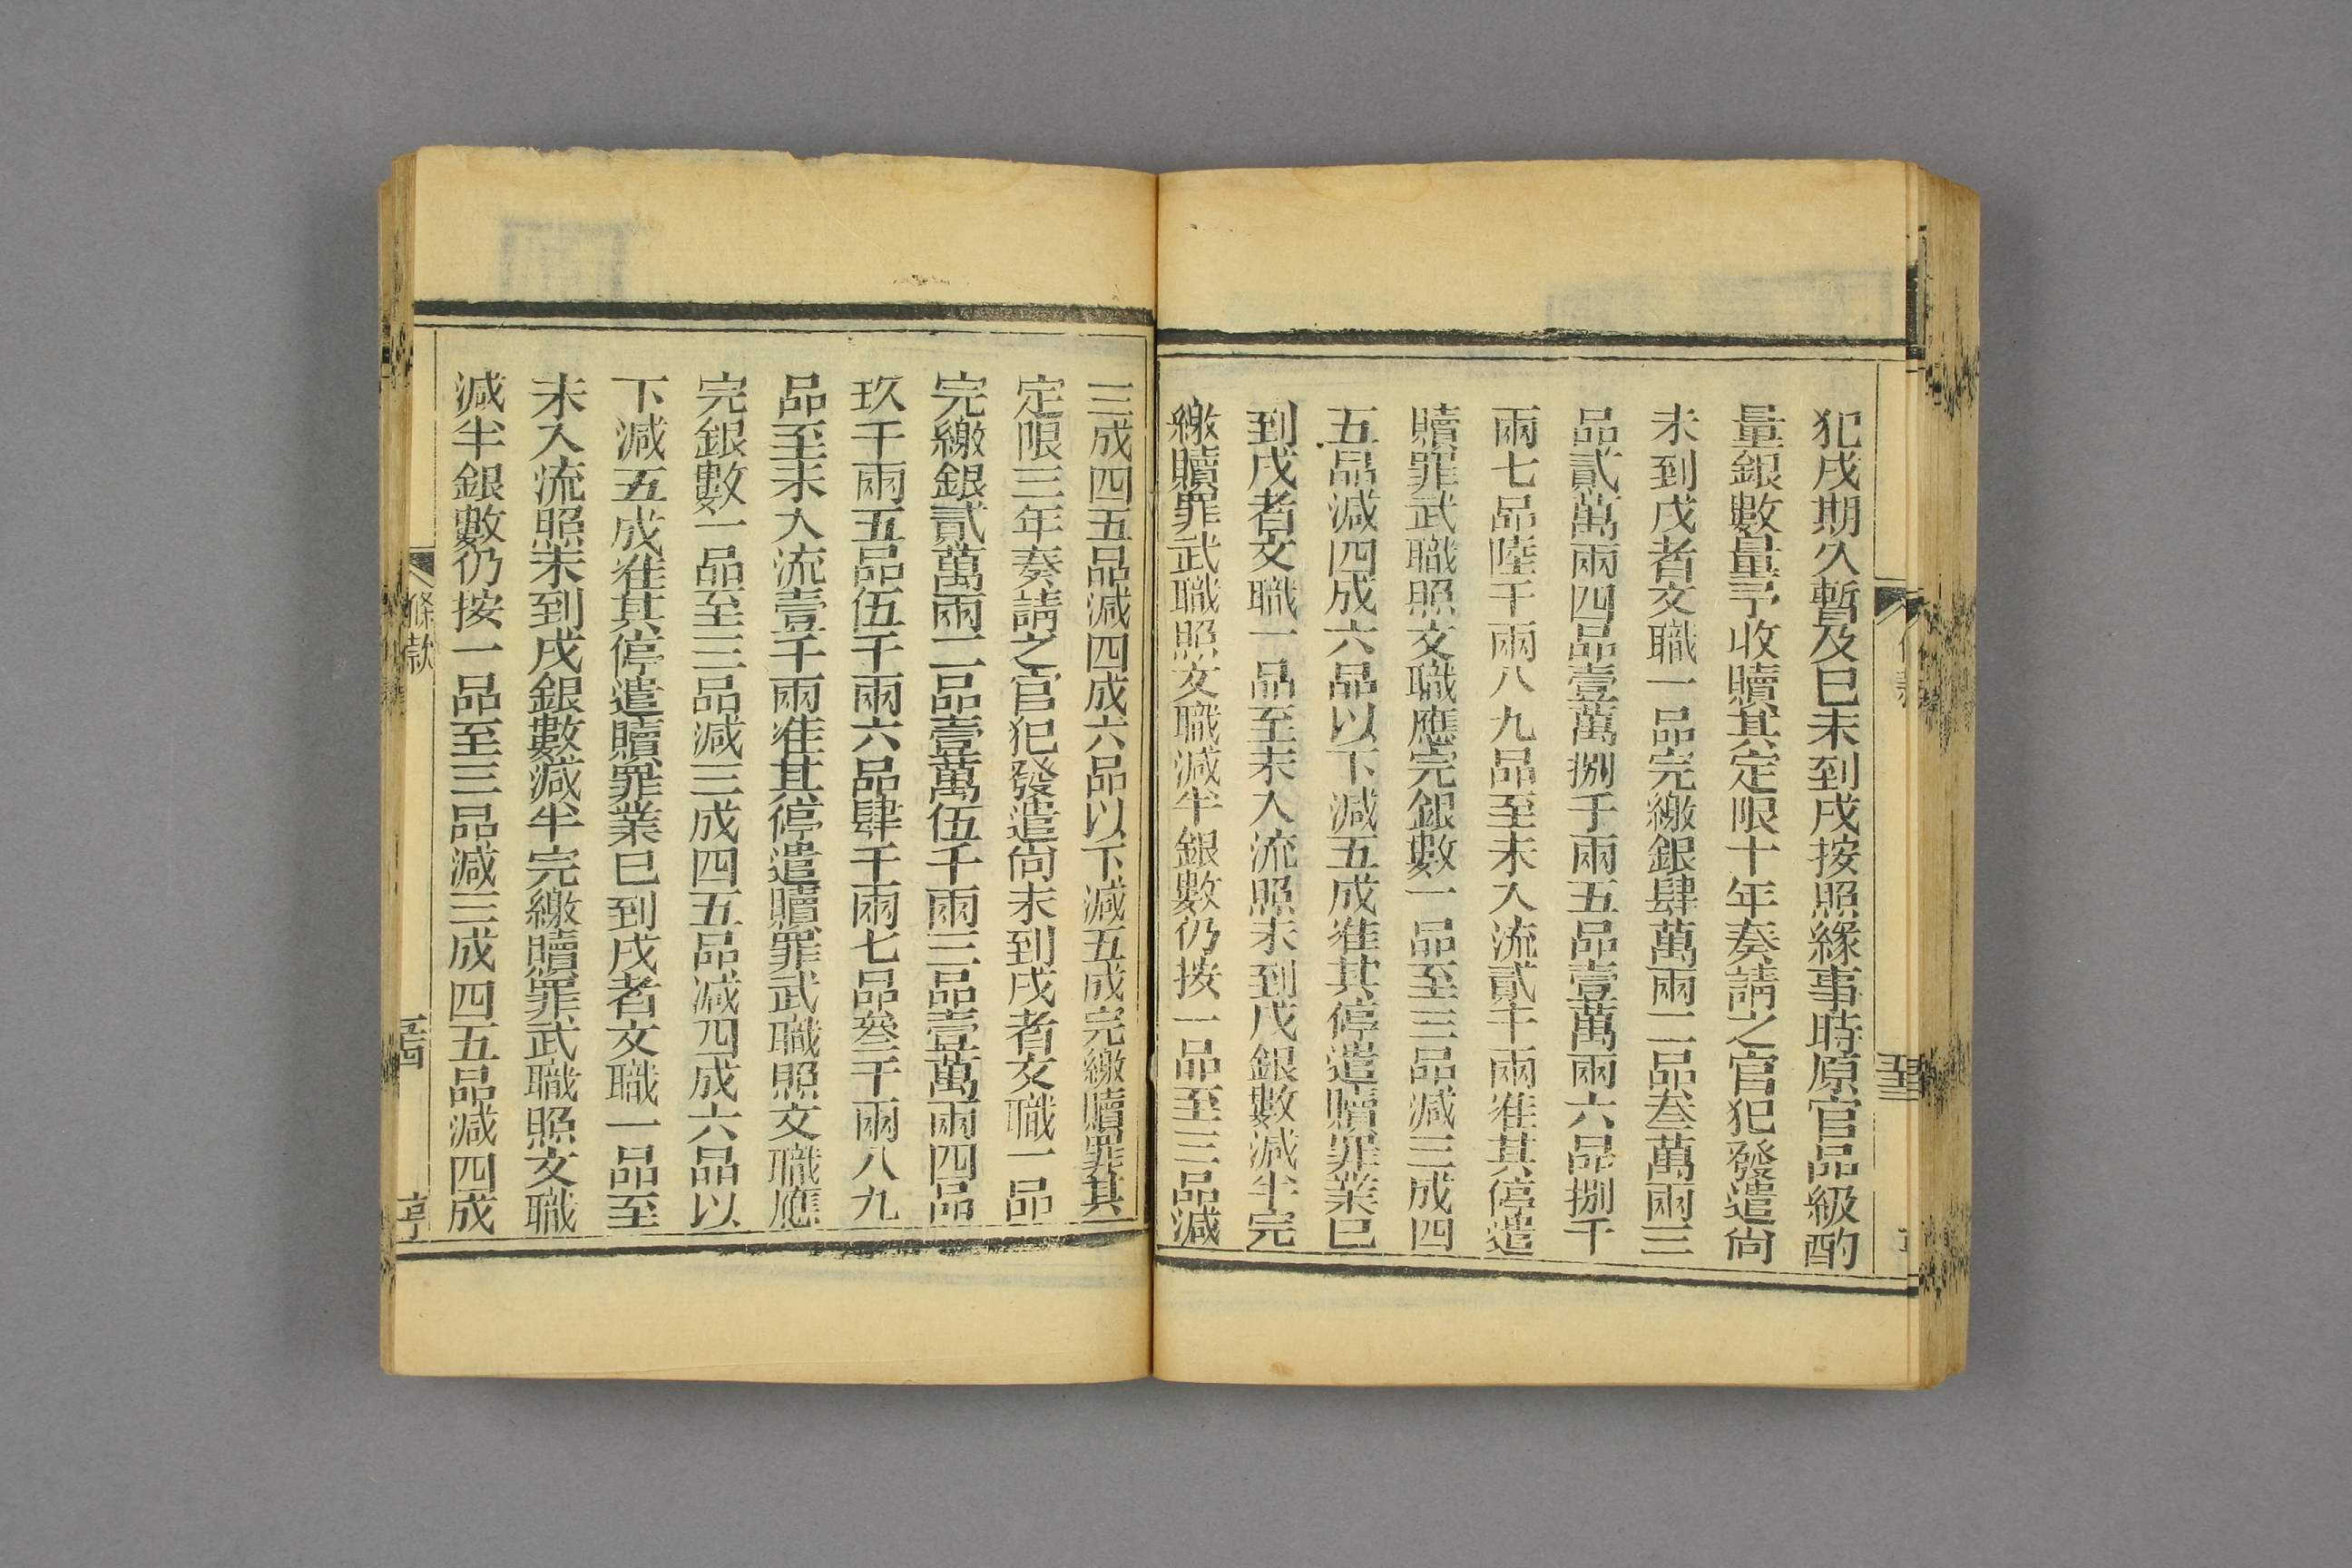 犯戌期久暫及已未到戌按照緣事時原官品級酌
量銀數量予收贖其定限十年奏請之官犯發遣尙
未到戌者文職一品完繳銀肆萬兩二品叁萬兩三
品貳萬兩四品壹萬捌千兩五品壹萬兩六品捌千
兩七品陸千兩八九品至未入流貳千兩准其停遣
贖罪武職照文職應完銀數一品至三品減三成四
五品減四成六品以下減五成准其停遣贖罪業已
到戌者文職一品至未入流照未到戌銀數減半完
繳贖罪武職照文職減半銀數仍按一品至三品減
三成四五品減四成六品以下減五成完繳贖罪其
定限三年奏請之官犯發遣尙未到戌者文職一品
完繳銀貳萬兩二品壹萬伍千兩三品壹萬兩四品
玖千兩五品伍千兩六品肆千兩七品叁千兩八九
品至未入流壹千兩准其停遣贖罪武職照文職應
完銀數一品至三品減三成四五品減四成六品以
下減五成准其停遣贖罪業已到戌者文職一品至
未入流照未到戌銀數減半完繳贖罪武職照文職
減半銀數仍按一品至三品減三成四五品減四成
條款